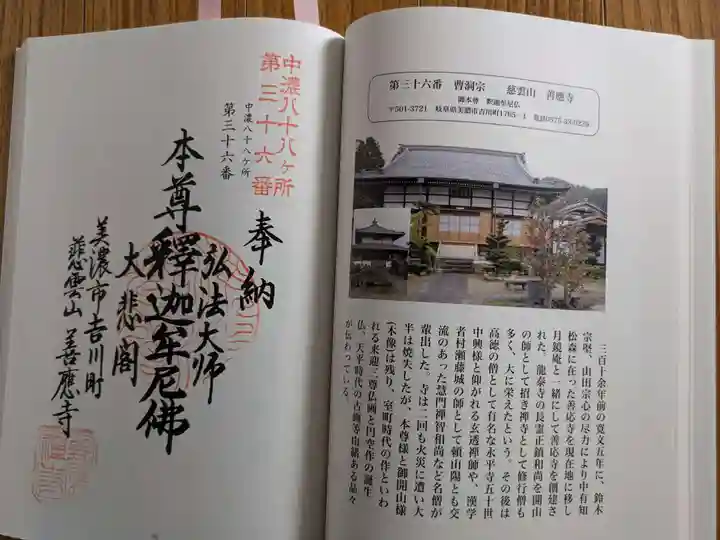 奉納
中濃八十八ヶ所
第三十六番
中濃八十八ヶ所
第三十六番
弘法大师
本尊釋迦牟尼佛
大悲閣
美濃市吉川町
慈雲山 善應寺
第三十六番 曹洞宗 慈雲山 善應寺
御本尊 釈迦牟尼仏
〒501-3721 岐阜県美濃市吉川町1765-1
三百十余年前の寛文五年に、鈴木
宗堅、山田宗心の尽力により中有知
松森に在った善応寺を現在地に移し
月鏡庵と一緒にして善応寺を創建さ
れた。龍泰寺の長霊正鎮和尚を開山
の師として招き禅寺として修行僧も
多く、大に栄えたという。その後は
高徳の僧として有名な永平寺五十世
中興様と仰がれる玄透禅師や、漢学
者村瀬藤城の師として頼山陽とも交
流のあった慧門禅智和尚など名僧が
輩出した。寺は二回も火災に遭い大
半は焼失したが、本尊様と御開山様
(木像)は残り、室町時代の作といわ
れる来迎三尊仏画と円空作の誕生
仏、天平時代の古曲等由緒ある品々
が伝わっている。